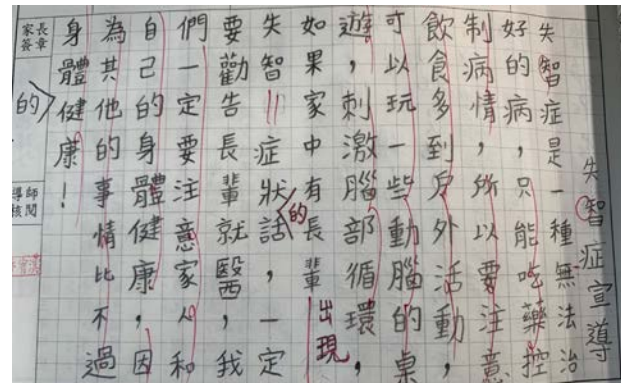 失智症宣導
失智症是一種無法治
好的病，只能吃藥控
制病情，所以要注意
飲食多到戶外活動，
可以玩一些動腦的桌
遊，刺激腦部循環，
如果家中有長輩出現
失智症狀的話，一定
要勸告長輩就醫，我
們一定要注意家人和
自己的身體健康，因
為其他的事情比不過
身體健康！
的
家長簽章
導師核閱